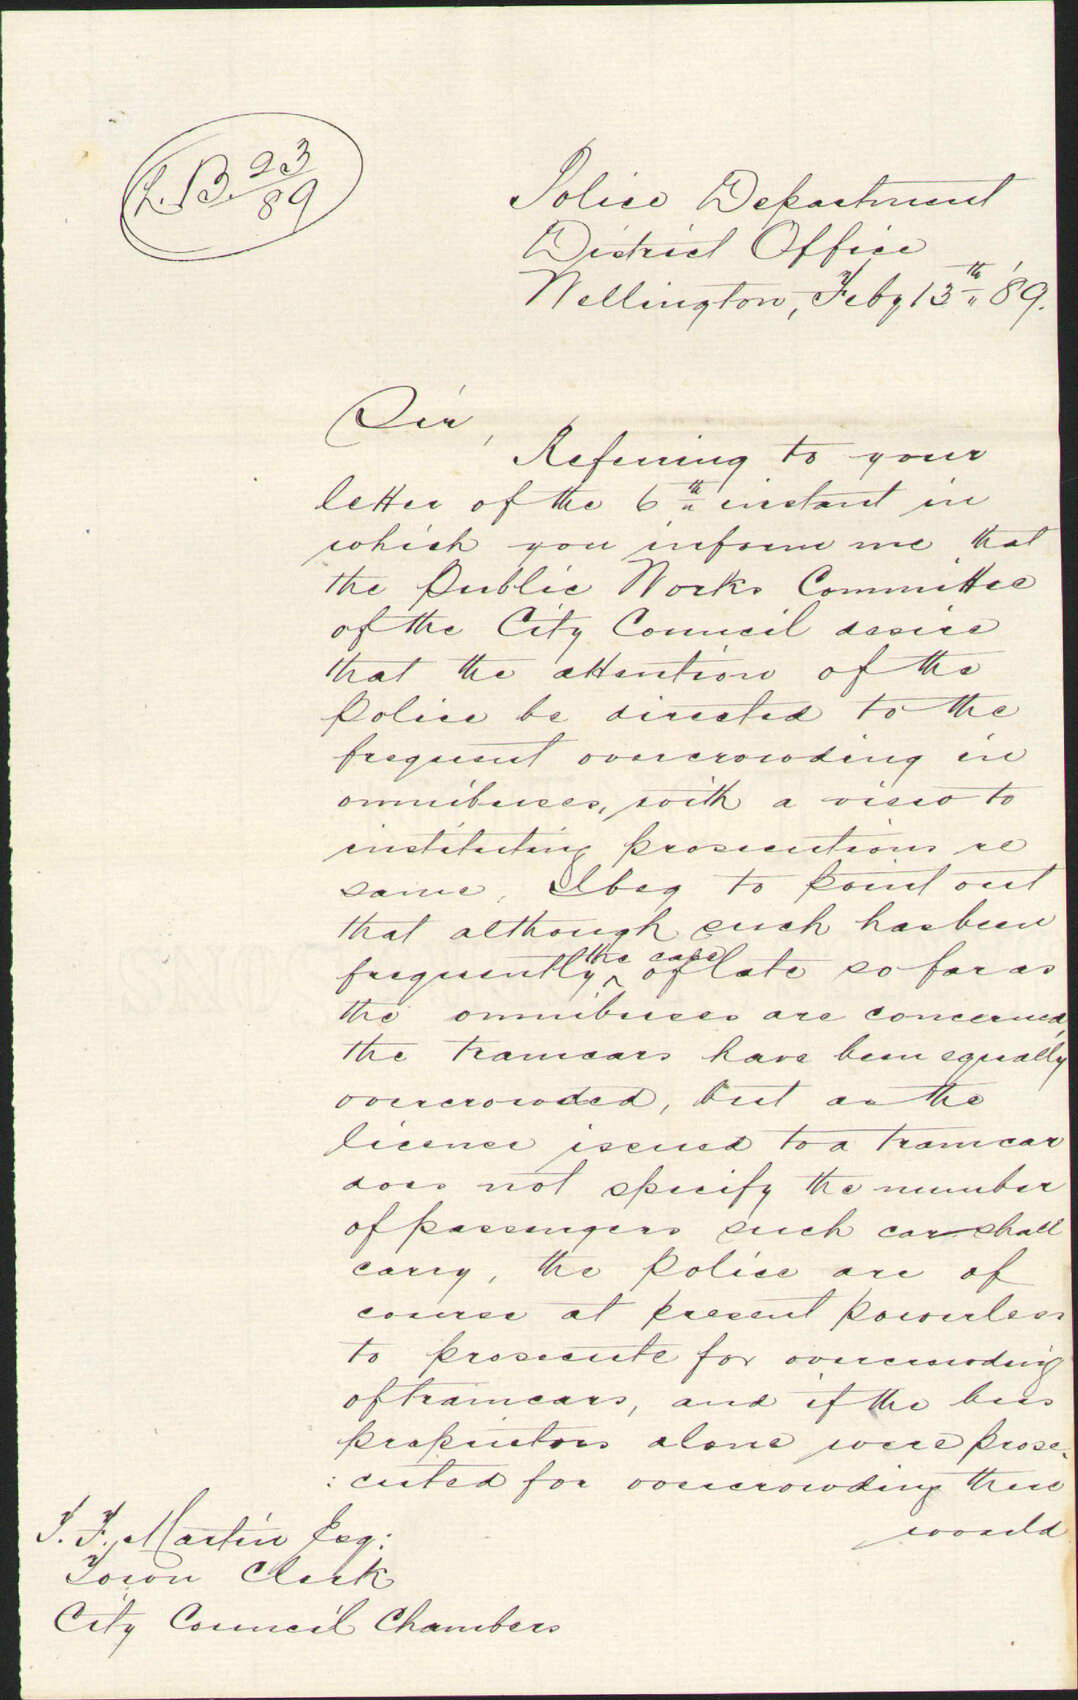 L.B. 23/89
Police Department
District Office
Wellington, Feby 13th '89.
Sir,
Referring to your
letter of the 6th instant in
which you inform me that
the Public Works Committee
of the City Council desire
that the attention of the
Police be directed to the
frequent overcrowding in
omnibuses, with a view to
instituting prosecutions re
same, I beg to point out
that although such has been
frequently the case of late so far as
the omnibuses are concerned,
the tramcars have been equally
overcrowded, but as the
license issued to a tramcar
does not specify the number
of passengers such car shall
carry, the Police are of
course at present powerless
to prosecute for overcrowding
of tramcars, and if the bus
proprietors alone were prose-
:cuted for overcrowding there
would
J. F. Martin Esq:
Town Clerk
City Council Chambers